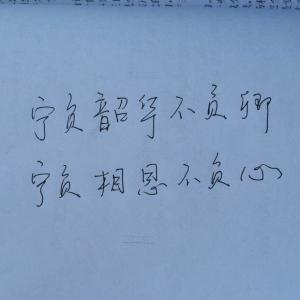 宁负韶华不负卿
宁负相思不负心